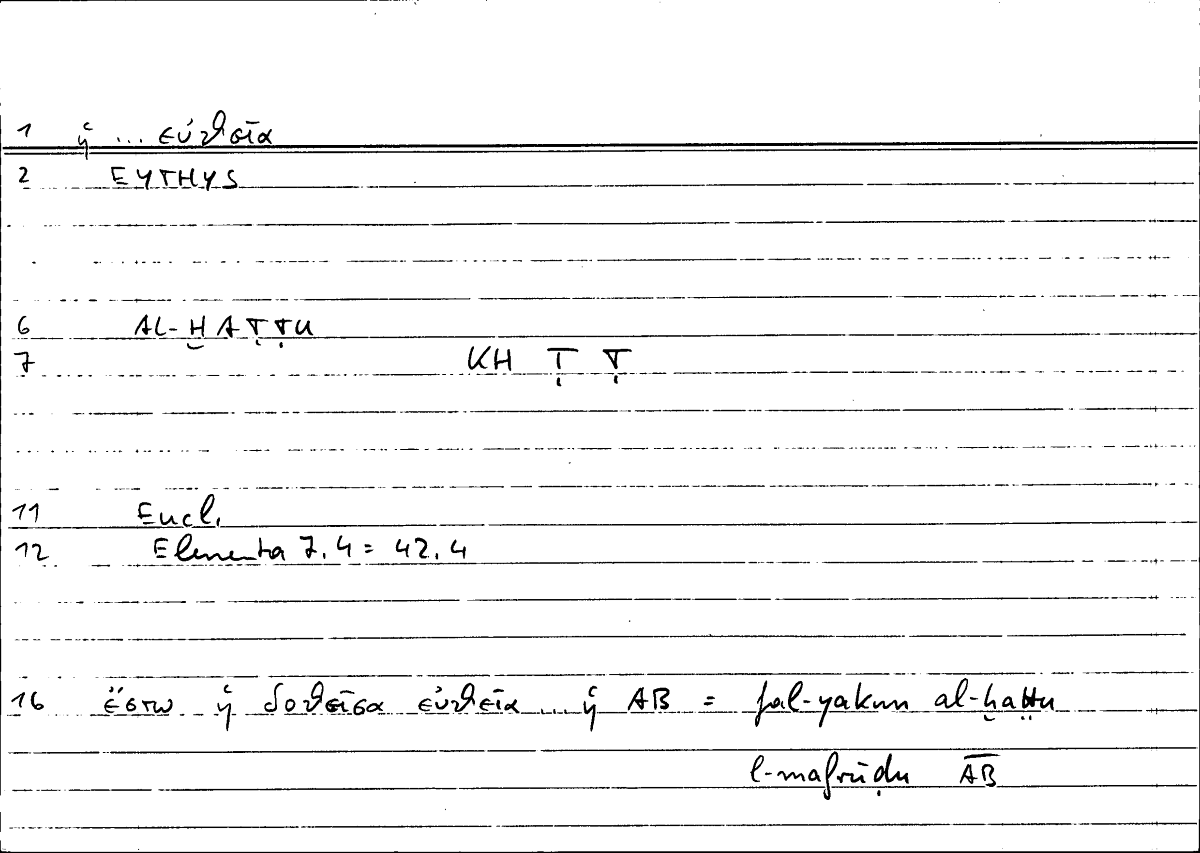 1 ἡ ... εὐθεῖα
2 EYTHYS
6 AL-ḪAṬṬU
7 KH Ṭ Ṭ
11 Eucl.
12 Elementa 7.4 = 42.4
16 ἔστω ἡ δοθεῖσα εὐθεῖα ... ἡ AB = fal-yakun al-ḫaṭṭu
l-mafrūḍu A̅B̅